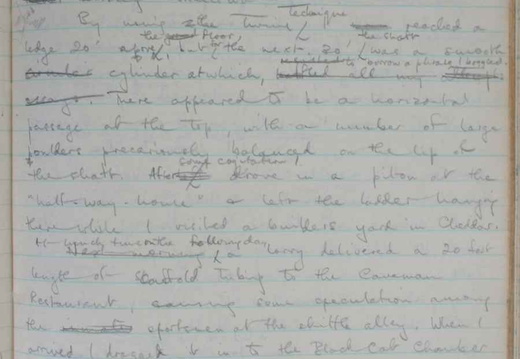 technique
By using the twine reached a
the floor, the shaft
ledge 20' above but the next 20' was a smooth
to borrow a phrase I boggled.
cylinder at which,
There appeared to be a horizontal
passage at the top, with a number of large
boulders precariously balanced on the lip of
some cogitation,
the shaft. After I drove in a piton at the
"half-way-house" & left the ladder hanging
there while I visited a builders yard in Cheddar.
At lunch time on the following day
a lorry delivered a 20 foot
length of scaffold tubing to the Caveman
Restaurant, causing some speculation among
the sportsmen at the skittle alley. When I
arrived I dragged it in to the Black Cat Chamber